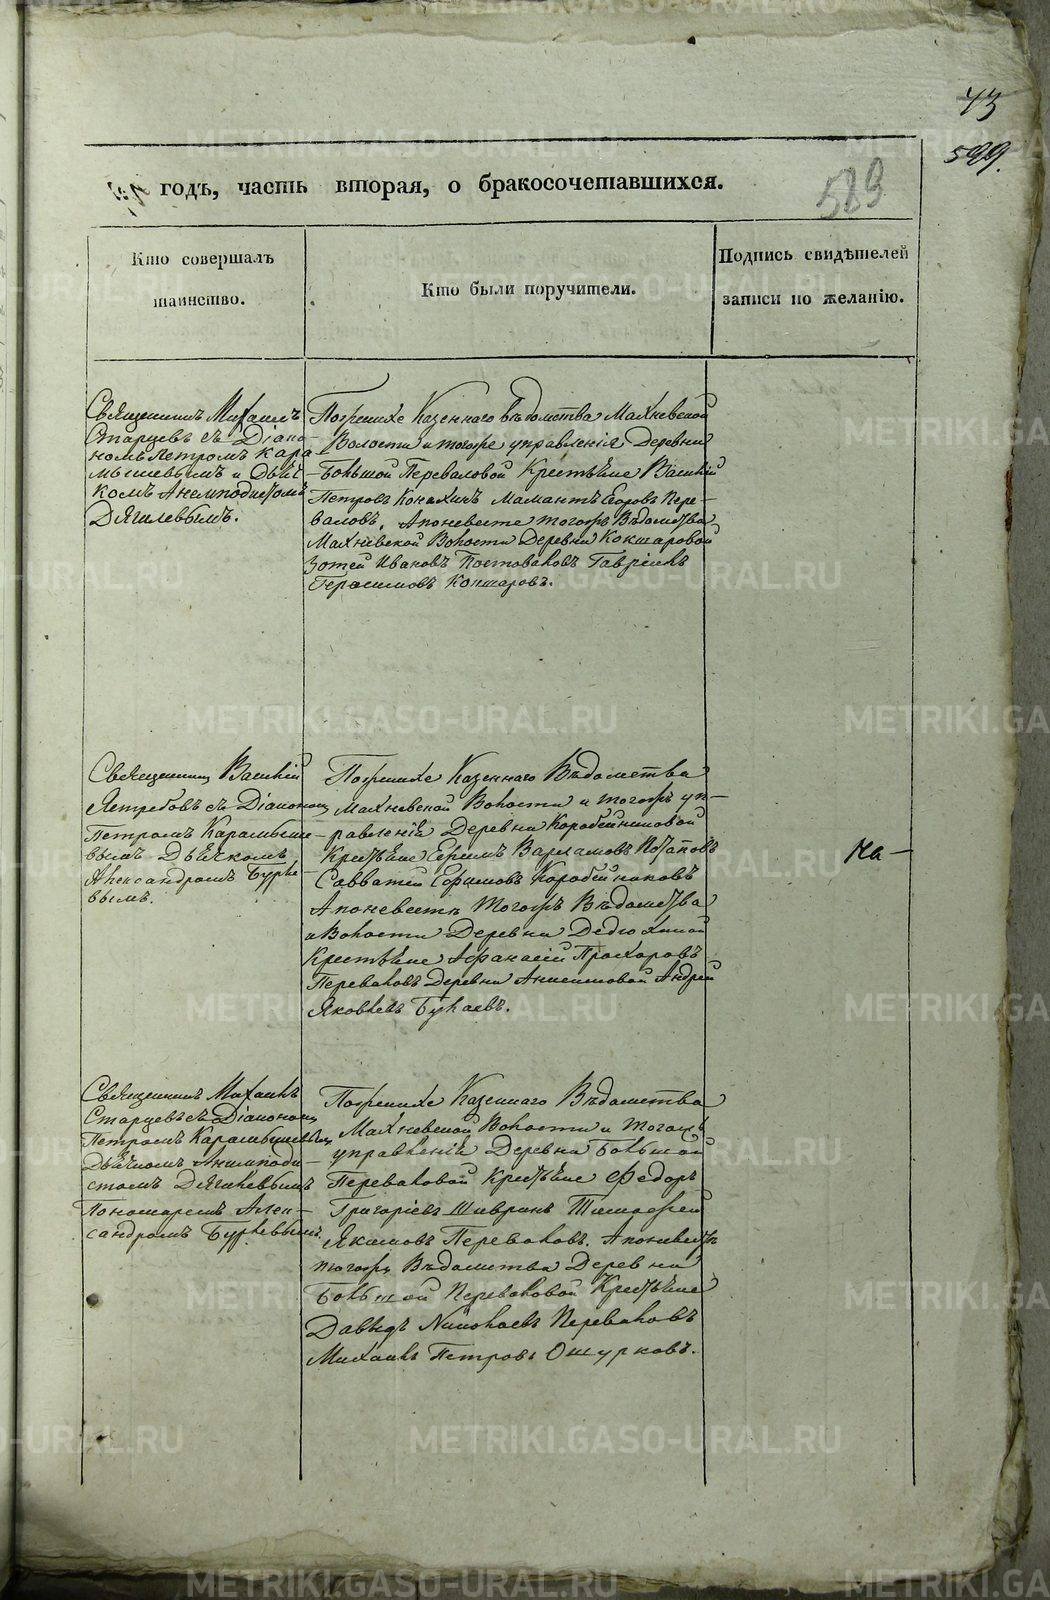 43
599.
589
годъ, часть вторая, о бракосочетавшихся.
Кто совершалъ
таинство.
Кто были поручители.
Подпись свидѣтелей
записи по желанію.
Священникъ Михаилъ
Старцевъ съ Діако-
номъ Петромъ Кара-
мышевымъ и Дьяч-
комъ Анемподистомъ
Дягилевымъ.
Пожених Казеннаго вѣдомства Махневской
Волости и тогоже управленія Деревни
Большой Переваловой Крестьяне Василій
Петровъ Конихинъ Мамантъ Егоровъ Пере-
валовъ. Апоневесте тогожъ Вѣдомства
Махневской Волости Деревни Кокшаровой
Зотей Ивановъ Постоваловъ Гавріилъ
Герасимовъ Кокшаровъ.
Священникъ Василій
Ястребовъ съ Діакономъ
Петромъ Карамыше-
вымъ Дьячкомъ
Александромъ Бурле-
вымъ.
Пожених Казеннаго Вѣдомства
Махневской Волости и тогожъ уп-
равленія Деревни Коробейниковой
Крестьяне Ефимъ Варламовъ Потаповъ
Савватей Ефимовъ Коробейниковъ
Апоневесте тогожъ Вѣдомства
и Волости Деревни Дедюхиной
Крестьяне Афанасій Прохоровъ
Переваловъ Деревни Анисимовой Андрей
Яковлевъ Булаевъ.
На-
Священникъ Михаилъ
Старцевъ съ Діакономъ
Петромъ Карамышевымъ
Дьячкомъ Анемподи-
стомъ Дягилевымъ
Пономаремъ Алек-
сандромъ Бурлевымъ.
Пожених Казеннаго Вѣдомства
Махневской Волости и тогожъ
управленія Деревни Большой
Переваловой Крестьяне Федоръ
Григоріевъ Шавринъ Тимофей
Якимовъ Переваловъ. Апоневесте
тогожъ Вѣдомства Деревни
Большой Переваловой Крестьяне
Давыдъ Николаевъ Переваловъ
Михаилъ Петровъ Ошурковъ.
METRIKI.GASO-URAL.RU